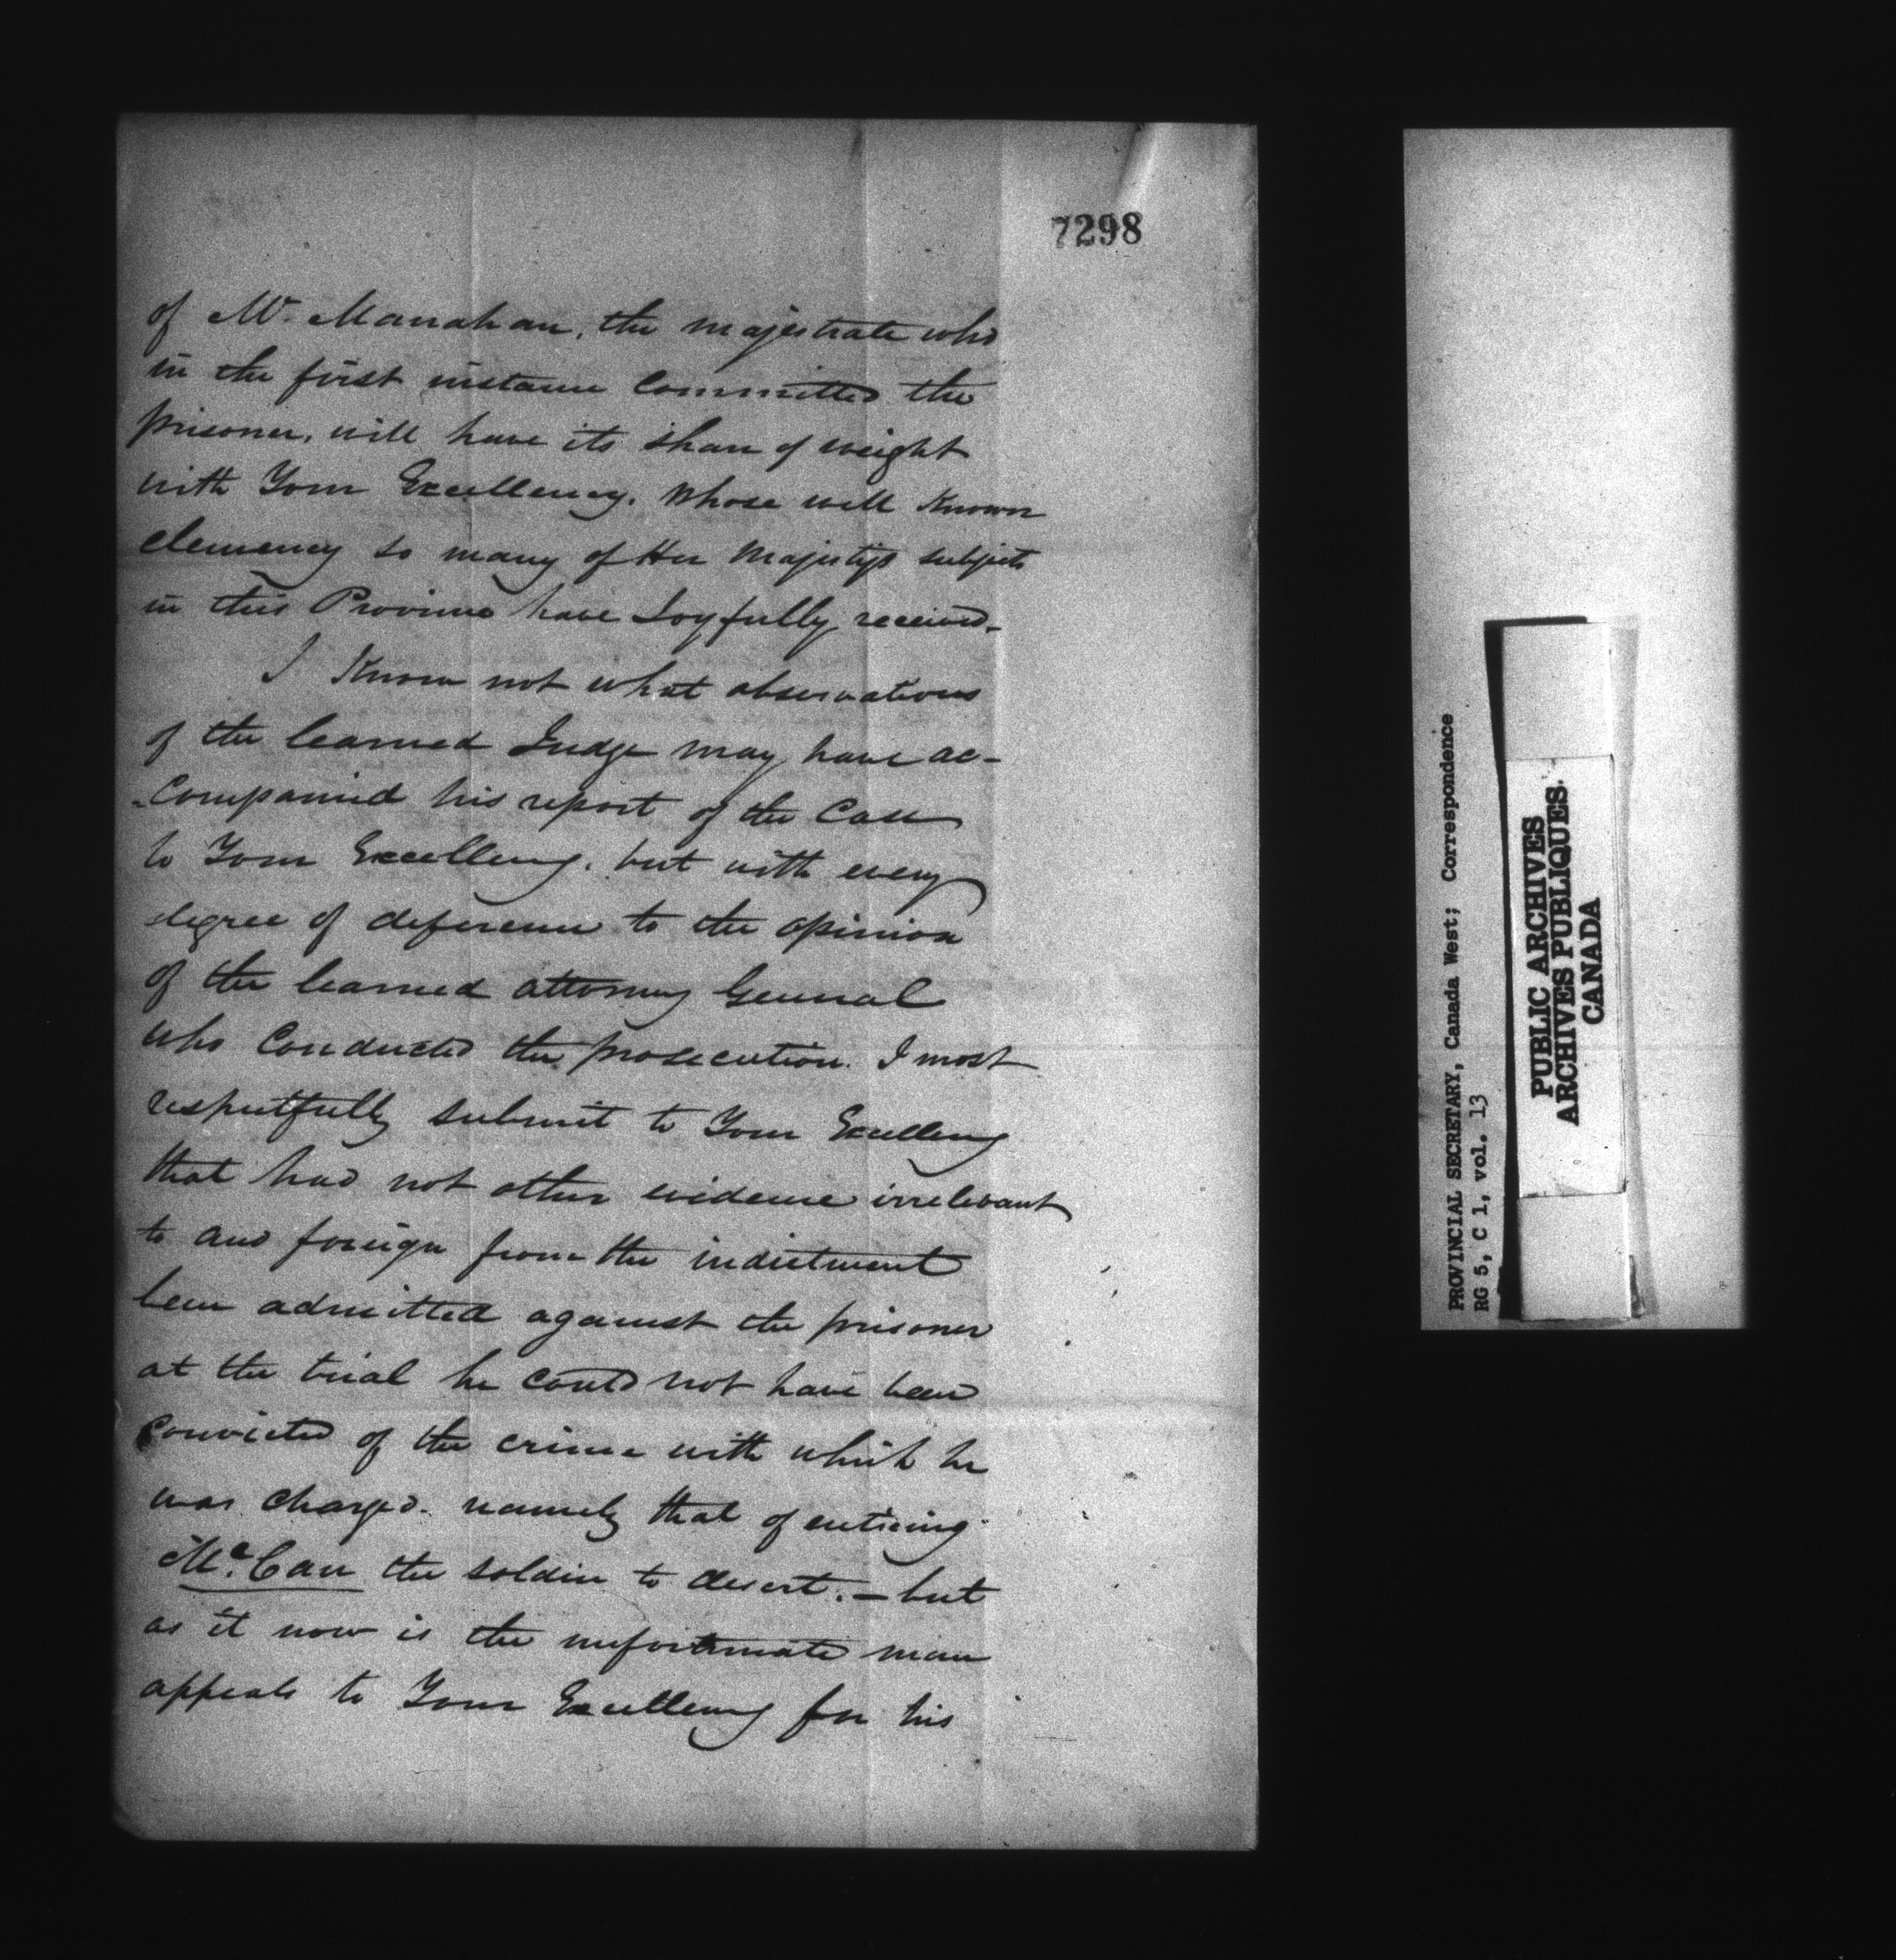 7298
of Mr. Manahan, the majestrate who
in the first instance Committed the
prisoner, will have its share of weight
with Your Excellency. Whose well Known
clemency so many of Her Majestys subjects
in this Province have Joyfully received.
I Know not what observations
of the learned Judge may have ac-
-Companied his report of the Case
to Your Excellency. but with every
degree of deference to the opinion
of the learned attorney General
who Conducted the prosecution. I most
respectfully submit to Your Excellency
that had not other evidence irrelevant
to and foreign from the indictment
been admitted against the prisoner
at the trial he could not have been
Convicted of the crime with which he
was charged. namely that of enticing
Mc. Can the soldier to desert. — but
as it now is the unfortunate man
appeals to Your Excellency for his
PROVINCIAL SECRETARY, Canada West; Correspondence
RG 5, C 1, vol. 13
PUBLIC ARCHIVES
ARCHIVES PUBLIQUES
CANADA